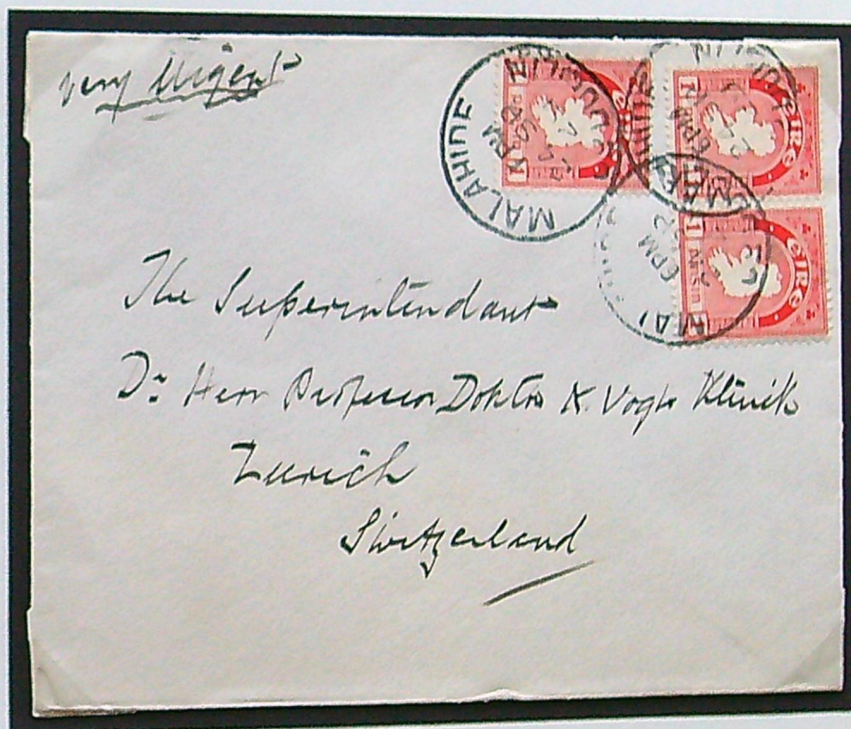 very Urgent
MALAHIDE
6 PM
ÉIRE
1
ÉIRE
1
6 PM
ÉIRE
1
6 PM
The Superintendant
Dr Herr Professor Doktor K. Vogts Klinik
Zurich
Switzerland